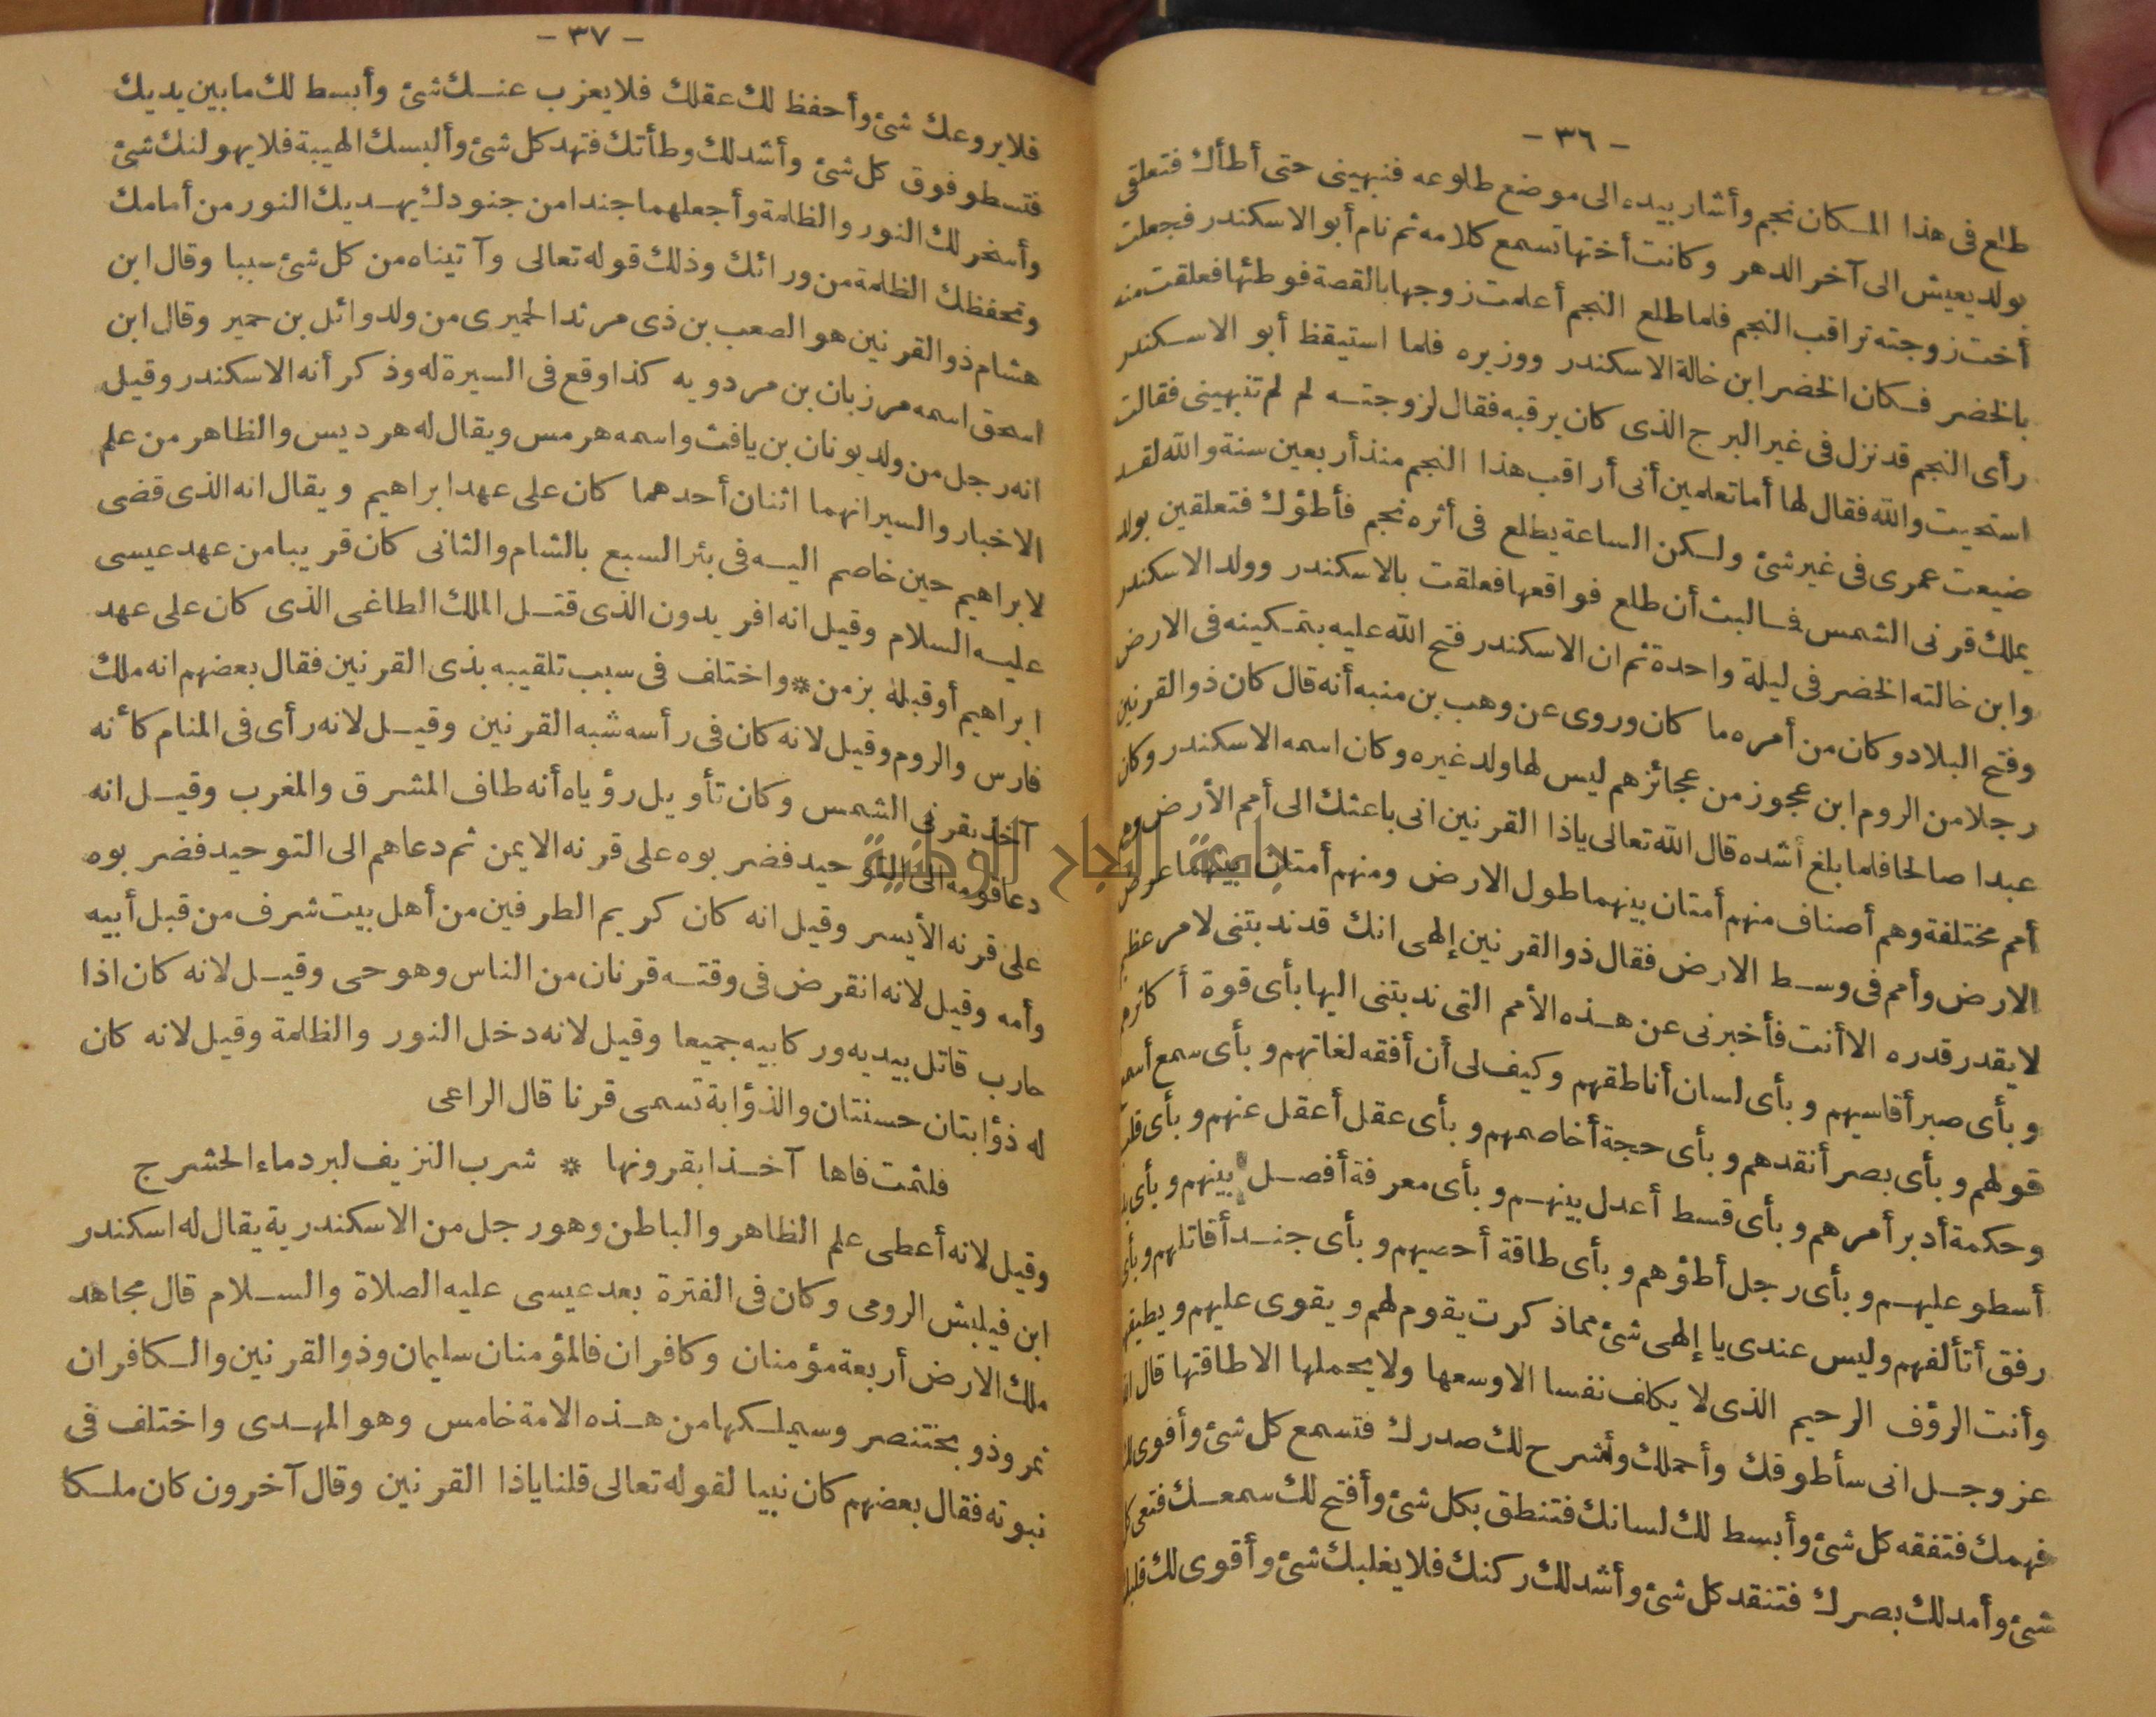 - ٣٦ -
طلع فى هذا المكان نجم وأشار بيده الى موضع طلوعه فنبهينى حتى أطأك فتعلقى
بولد يعيش الى آخر الدهر وكانت أختها تسمع كلامه ثم نام أبو الاسكندر فجعلت
أخت زوجته تراقب النجم فلما طلع النجم أعلمت زوجها بالقصة فوطئها فعلقت منه
بالخضر فكان الخضر ابن خالة الاسكندر ووزيره فلما استيقظ أبو الاسكندر
رأى النجم قد نزل فى غير البرج الذى كان يرقبه فقال لزوجته لم لم تنبهينى فقالت
استحيت والله فقال لها أما تعلمين أنى أراقب هذا النجم منذ أربعين سنة والله لقد
ضيعت عمرى فى غير شئ ولكن الساعة يطلع فى أثره نجم فأطؤك فتعلقين بولد
يملك قرنى الشمس فما لبث أن طلع فواقعها فعلقت بالاسكندر وولد الاسكندر
وابن خالته الخضر فى ليلة واحدة ثم ان الاسكندر فتح الله عليه بتمكينه فى الارض
وفتح البلاد وكان من أمره ما كان وروى عن وهب بن منبه أنه قال كان ذو القرنين
رجلا من الروم ابن عجوز من عجائزهم ليس لها ولد غيره وكان اسمه الاسكندر وكان
عبدا صالحا فلما بلغ أشده قال الله تعالى ياذا القرنين انى باعثك الى أمم الأرض وهم
أمم مختلفة وهم أصناف منهم أمتان بينهما طول الارض ومنهم أمتان بينهما عرض
الارض وأمم فى وسط الارض فقال ذو القرنين إلهى انك قد ندبتنى لامر عظيم
لا يقدر قدره الا أنت فأخبرنى عن هذه الأمم التى ندبتنى اليها بأى قوة أكاثرهم
وبأى صبر أقاسيهم وبأى لسان أناطقهم وكيف لى أن أفقه لغاتهم وبأى سمع أسمع
قولهم وبأى بصر أنقدهم وبأى حجة أخاصمهم وبأى عقل أعقل عنهم وبأى قلب
وحكمة أدبر أمرهم وبأى قسط أعدل بينهم وبأى معرفة أفصل بينهم وبأى يد
أسطو عليهم وبأى رجل أطؤهم وبأى طاقة أحصيهم وبأى جند أقاتلهم وبأى
رفق أتألفهم وليس عندى يا إلهى شئ مماذ كرت يقوم لهم ويقوى عليهم ويطيقهم
وأنت الرؤف الرحيم الذى لا يكلف نفسا الا وسعها ولا يحملها الا طاقتها قال الله
عز وجل انى سأطوقك وأحملك وأشرح لك صدرك فتسمع كل شئ وأقوى لك
فهمك فتفقه كل شئ وأبسط لك لسانك فتنطق بكل شئ وأفتح لك سمعك فتعى كل
شئ وأمد لك بصرك فتنقد كل شئ وأشد لك ركنك فلا يغلبك شئ وأقوى لك قلبك
- ٣٧ -
فلا يروعك شئ وأحفظ لك عقلك فلا يعزب عنك شئ وأبسط لك ما بين يديك
فتسطو فوق كل شئ وأشد لك وطأتك فتهد كل شئ وألبسك الهيبة فلا يهولنك شئ
وأسخر لك النور والظلمة وأجعلهما جندا من جنودك يهديك النور من أمامك
وتحفظك الظلمة من ورائك وذلك قوله تعالى وآتيناه من كل شئ سببا وقال ابن
هشام ذو القرنين هو الصعب بن ذى مرثد الحميرى من ولد وائل بن حمير وقال ابن
اسحق اسمه مرزبان بن مردويه كذا وقع فى السيرة له وذكر أنه الاسكندر وقيل
انه رجل من ولد يونان بن يافث واسمه هرمس ويقال له هرديس والظاهر من علم
الاخبار والسير انهما اثنان أحدهما كان على عهد ابراهيم ويقال انه الذى قضى
لابراهيم حين خاصم اليه فى بئر السبع بالشام والثانى كان قريبا من عهد عيسى
عليه السلام وقيل انه افريدون الذى قتل الملك الطاغى الذى كان على عهد
ابراهيم أو قبله بزمن * واختلف فى سبب تلقيبه بذى القرنين فقال بعضهم انه ملك
فارس والروم وقيل لانه كان فى رأسه شبه القرنين وقيل لانه رأى فى المنام كأنه
آخذ بقرنى الشمس وكان تأويل رؤياه أنه طاف المشرق والمغرب وقيل انه
دعا قومه الى التوحيد فضربوه على قرنه الايمن ثم دعاهم الى التوحيد فضربوه
على قرنه الأيسر وقيل انه كان كريم الطرفين من أهل بيت شرف من قبل أبيه
وأمه وقيل لانه انقرض فى وقته قرنان من الناس وهو حى وقيل لانه كان اذا
حارب قاتل بيديه وركابيه جميعا وقيل لانه دخل النور والظلمة وقيل لانه كان
له ذؤابتان حسنتان والذؤابة تسمى قرنا قال الراعى
فلثمت فاها آخذا بقرونها * شرب النزيف لبرد ماء الحشرج
وقيل لانه أعطى علم الظاهر والباطن وهو رجل من الاسكندرية يقال له اسكندر
ابن فيلبش الرومى وكان فى الفترة بعد عيسى عليه الصلاة والسلام قال مجاهد
ملك الارض أربعة مؤمنان وكافران فالمؤمنان سليمان وذو القرنين والكافران
نمروذ و بختنصر وسيملكها من هذه الامة خامس وهو المهدى واختلف فى
نبوته فقال بعضهم كان نبيا لقوله تعالى قلنا ياذا القرنين وقال آخرون كان ملكا
جامعة النجاح الوطنية